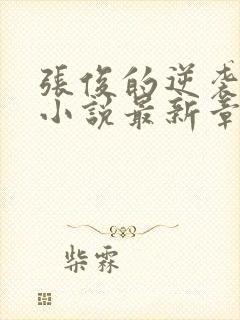 張俊的逆袭
小說最新章
柴霖